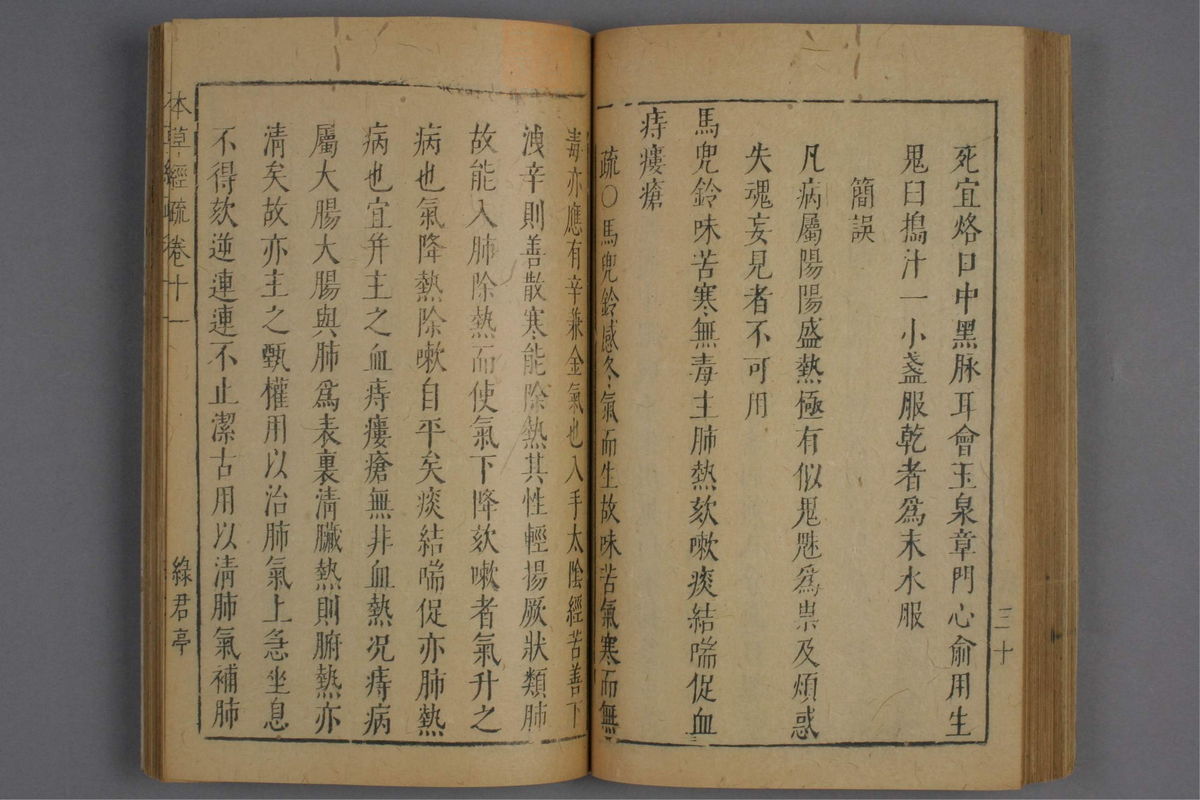 死宜烙日中黑脉耳會玉泉章門心俞用生
鬼臼搗汁一小盞服乾者爲末水服
簡誤
凡病屬陽陽盛熱極有似鬼魅爲祟及煩惑
失魂妄見者不可用
馬兜鈴味苦寒無毒主肺熱欬嗽痰結喘促血
痔瘻瘡
疏○馬兜鈴感冬氣而生故味苦氣寒而無
三十
毒亦應有辛兼金氣也入手太陰經苦善下
洩辛則善散寒能除熱其性輕揚厥狀類肺
故能入肺除熱而使氣下降欬嗽者氣升之
病也氣降熱除嗽自平矣痰結喘促亦肺熱
病也宜并主之血痔瘻瘡無非血熱况痔病
屬大腸大腸與肺爲表裏清臟熱則腑熱亦
清矣故亦主之甄權用以治肺氣上急坐息
不得欬逆連連不止潔古用以清肺氣補肺
本草經疏卷十一
綠君亭